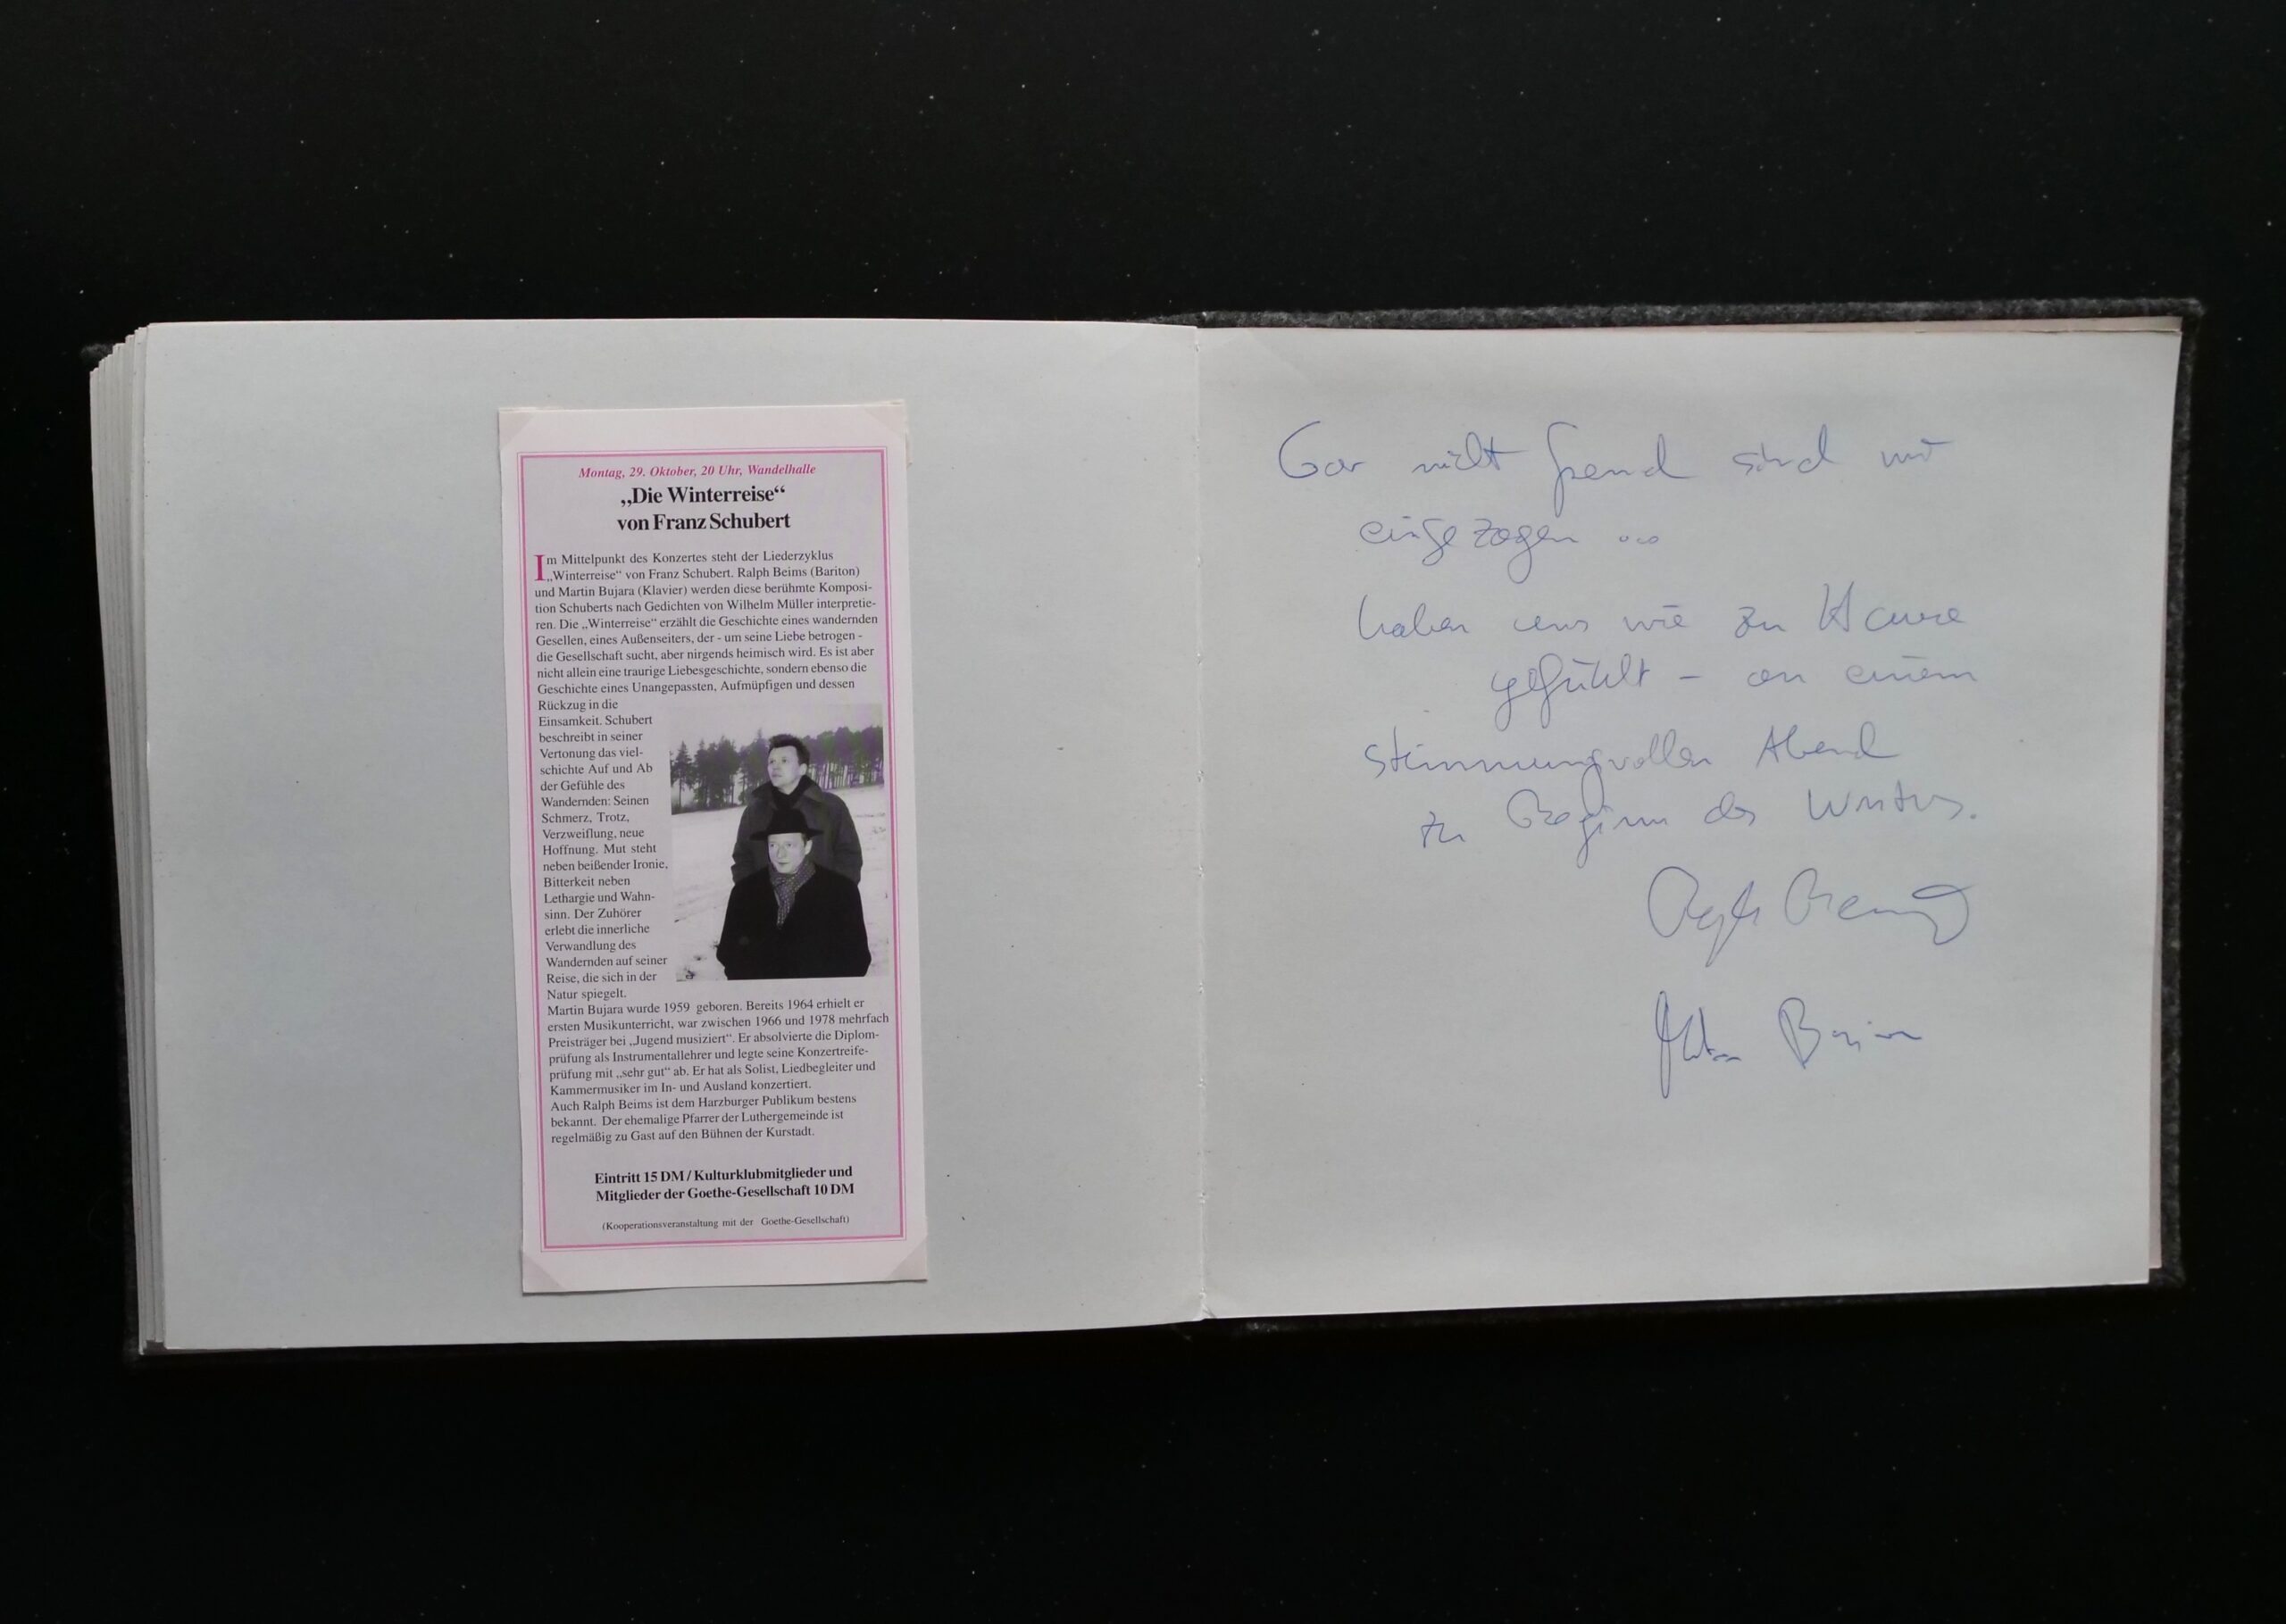 Montag, 29. Oktober, 20 Uhr, Wandelhalle
„Die Winterreise“
von Franz Schubert
Im Mittelpunkt des Konzertes steht der Liederzyklus
„Winterreise“ von Franz Schubert. Ralph Beims (Bariton)
und Martin Bujara (Klavier) werden diese berühmte Komposi-
tion Schuberts nach Gedichten von Wilhelm Müller interpretie-
ren. Die „Winterreise“ erzählt die Geschichte eines wandernden
Gesellen, eines Außenseiters, der - um seine Liebe betrogen -
die Gesellschaft sucht, aber nirgends heimisch wird. Es ist aber
nicht allein eine traurige Liebesgeschichte, sondern ebenso die
Geschichte eines Unangepassten, Aufmüpfigen und dessen
Rückzug in die
Einsamkeit. Schubert
beschreibt in seiner
Vertonung das viel-
schichte Auf und Ab
der Gefühle des
Wandernden: Seinen
Schmerz, Trotz,
Verzweiflung, neue
Hoffnung. Mut steht
neben beißender Ironie,
Bitterkeit neben
Lethargie und Wahn-
sinn. Der Zuhörer
erlebt die innerliche
Verwandlung des
Wandernden auf seiner
Reise, die sich in der
Natur spiegelt.
Martin Bujara wurde 1959 geboren. Bereits 1964 erhielt er
ersten Musikunterricht, war zwischen 1966 und 1978 mehrfach
Preisträger bei „Jugend musiziert“. Er absolvierte die Diplom-
prüfung als Instrumentallehrer und legte seine Konzertreife-
prüfung mit „sehr gut“ ab. Er hat als Solist, Liedbegleiter und
Kammermusiker im In- und Ausland konzertiert.
Auch Ralph Beims ist dem Harzburger Publikum bestens
bekannt. Der ehemalige Pfarrer der Luthergemeinde ist
regelmäßig zu Gast auf den Bühnen der Kurstadt.
Eintritt 15 DM / Kulturklubmitglieder und
Mitglieder der Goethe-Gesellschaft 10 DM
(Kooperationsveranstaltung mit der Goethe-Gesellschaft)
Gar nicht fremd sind wir
eingezogen ...
haben uns wie zu Hause
gefühlt - an einem
stimmungsvollen Abend
zu Beginn des Winters.
Ralph Beims
Martin Bujara